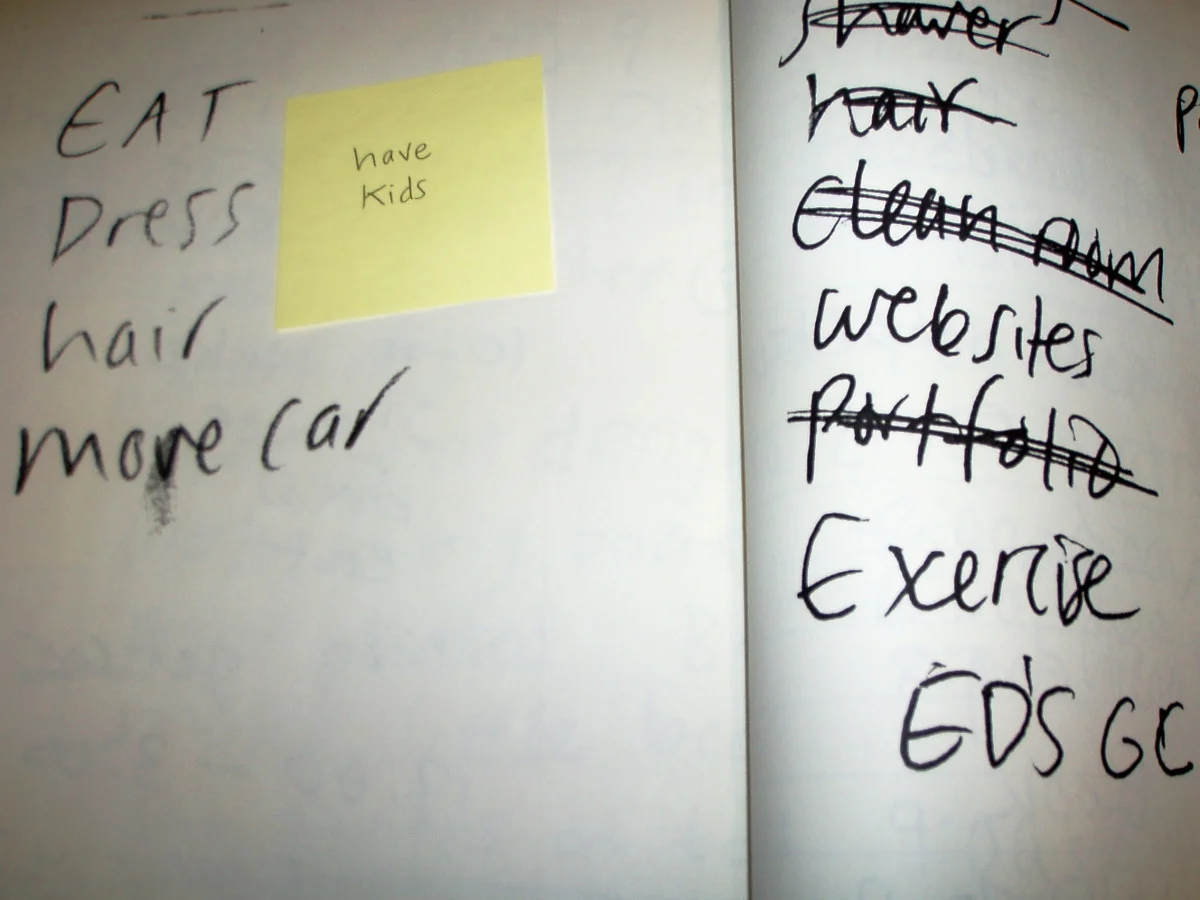 EAT
Dress
hair
move car
have
kids
shower
hair
clean room
websites
portfolio
Exercise
ED'S GC